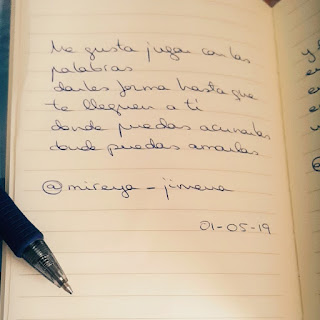 Me gusta jugar con las
palabras
darles forma hasta que
te lleguen a ti
donde puedas acunarlas
donde puedas amarlas
@mireya_jimena
01-05-19
y l